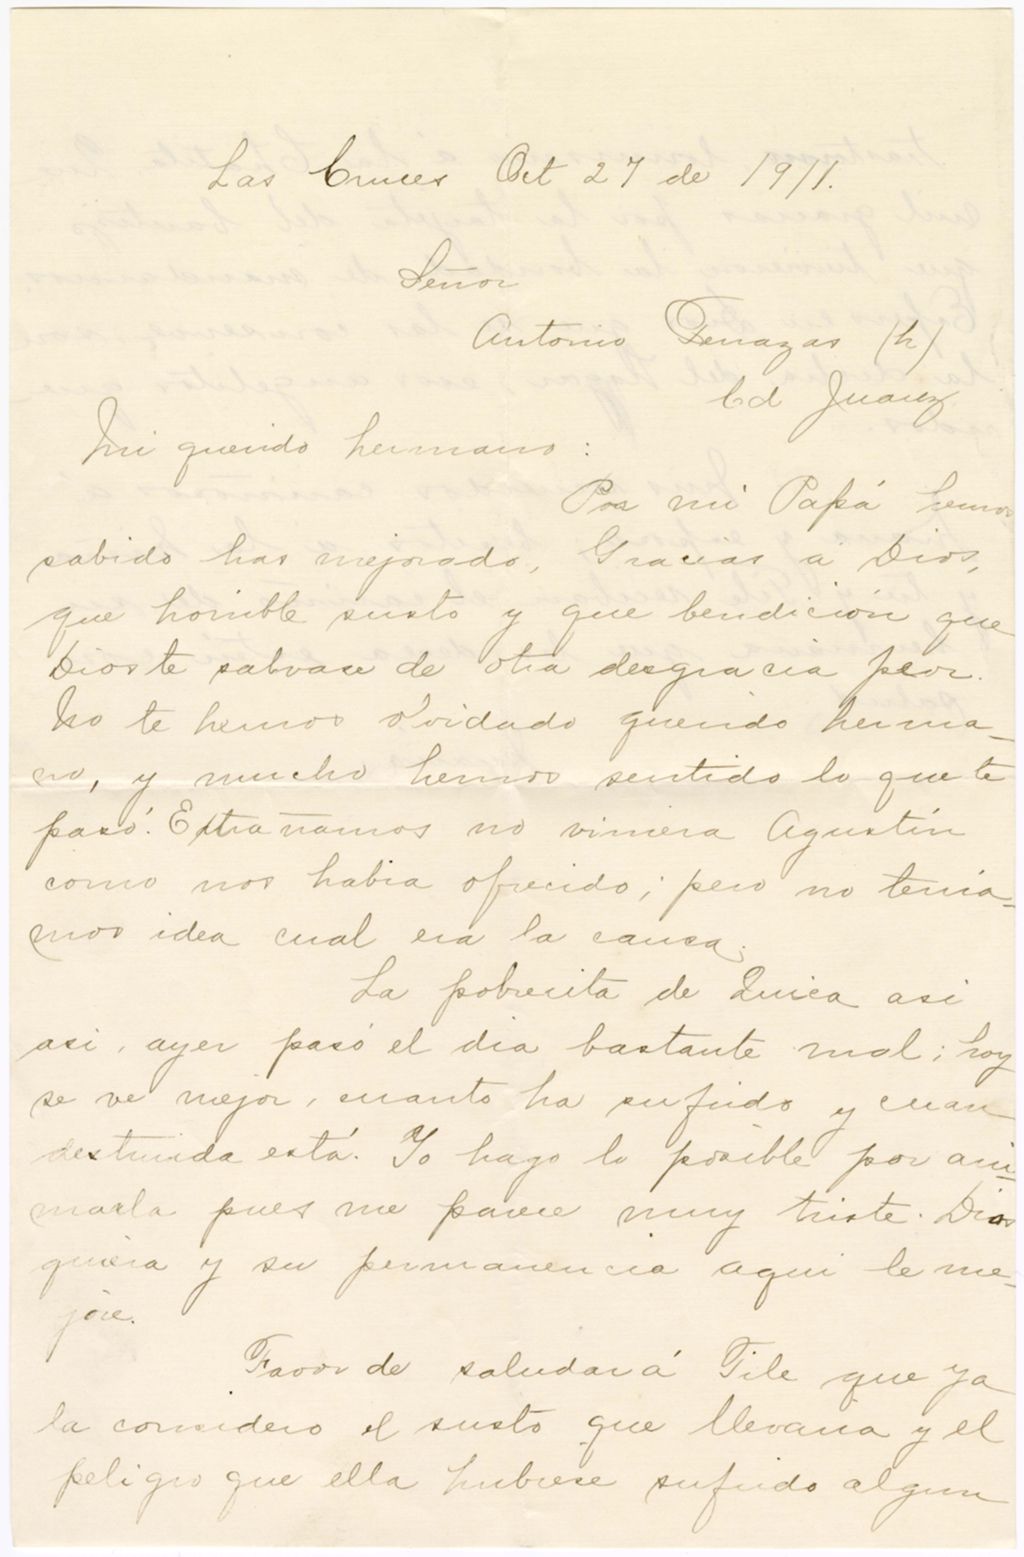 Las Cruces Oct 27 de 1911.
Señor
Antonio Terrazas (h)
Cd Juarez
Mi querido hermano:
Por mi Papá hemos
sabido has mejorado, Gracias a Dios,
que horrible susto y que bendición que
Dios te salvase de otra desgracia peor.
No te hemos olvidado querido herma-
no, y mucho hemos sentido lo que te
pasó. Extrañamos no viniera Agustín
como nos habia ofrecido; pero no tenía-
mos idea cual era la causa.
La pobrecita de Quica asi
asi, ayer pasó el dia bastante mal; hoy
se ve mejor, cuanto ha sufrido y cuan
destruida está. Yo hago lo posible por ani-
marla pues me parece muy triste. Dios
quiera y su permanencia aqui le me-
jore.
Favor de saludar á Tile que ya
la considero el susto que llevaria y el
peligro que ella hubiese sufrido algun